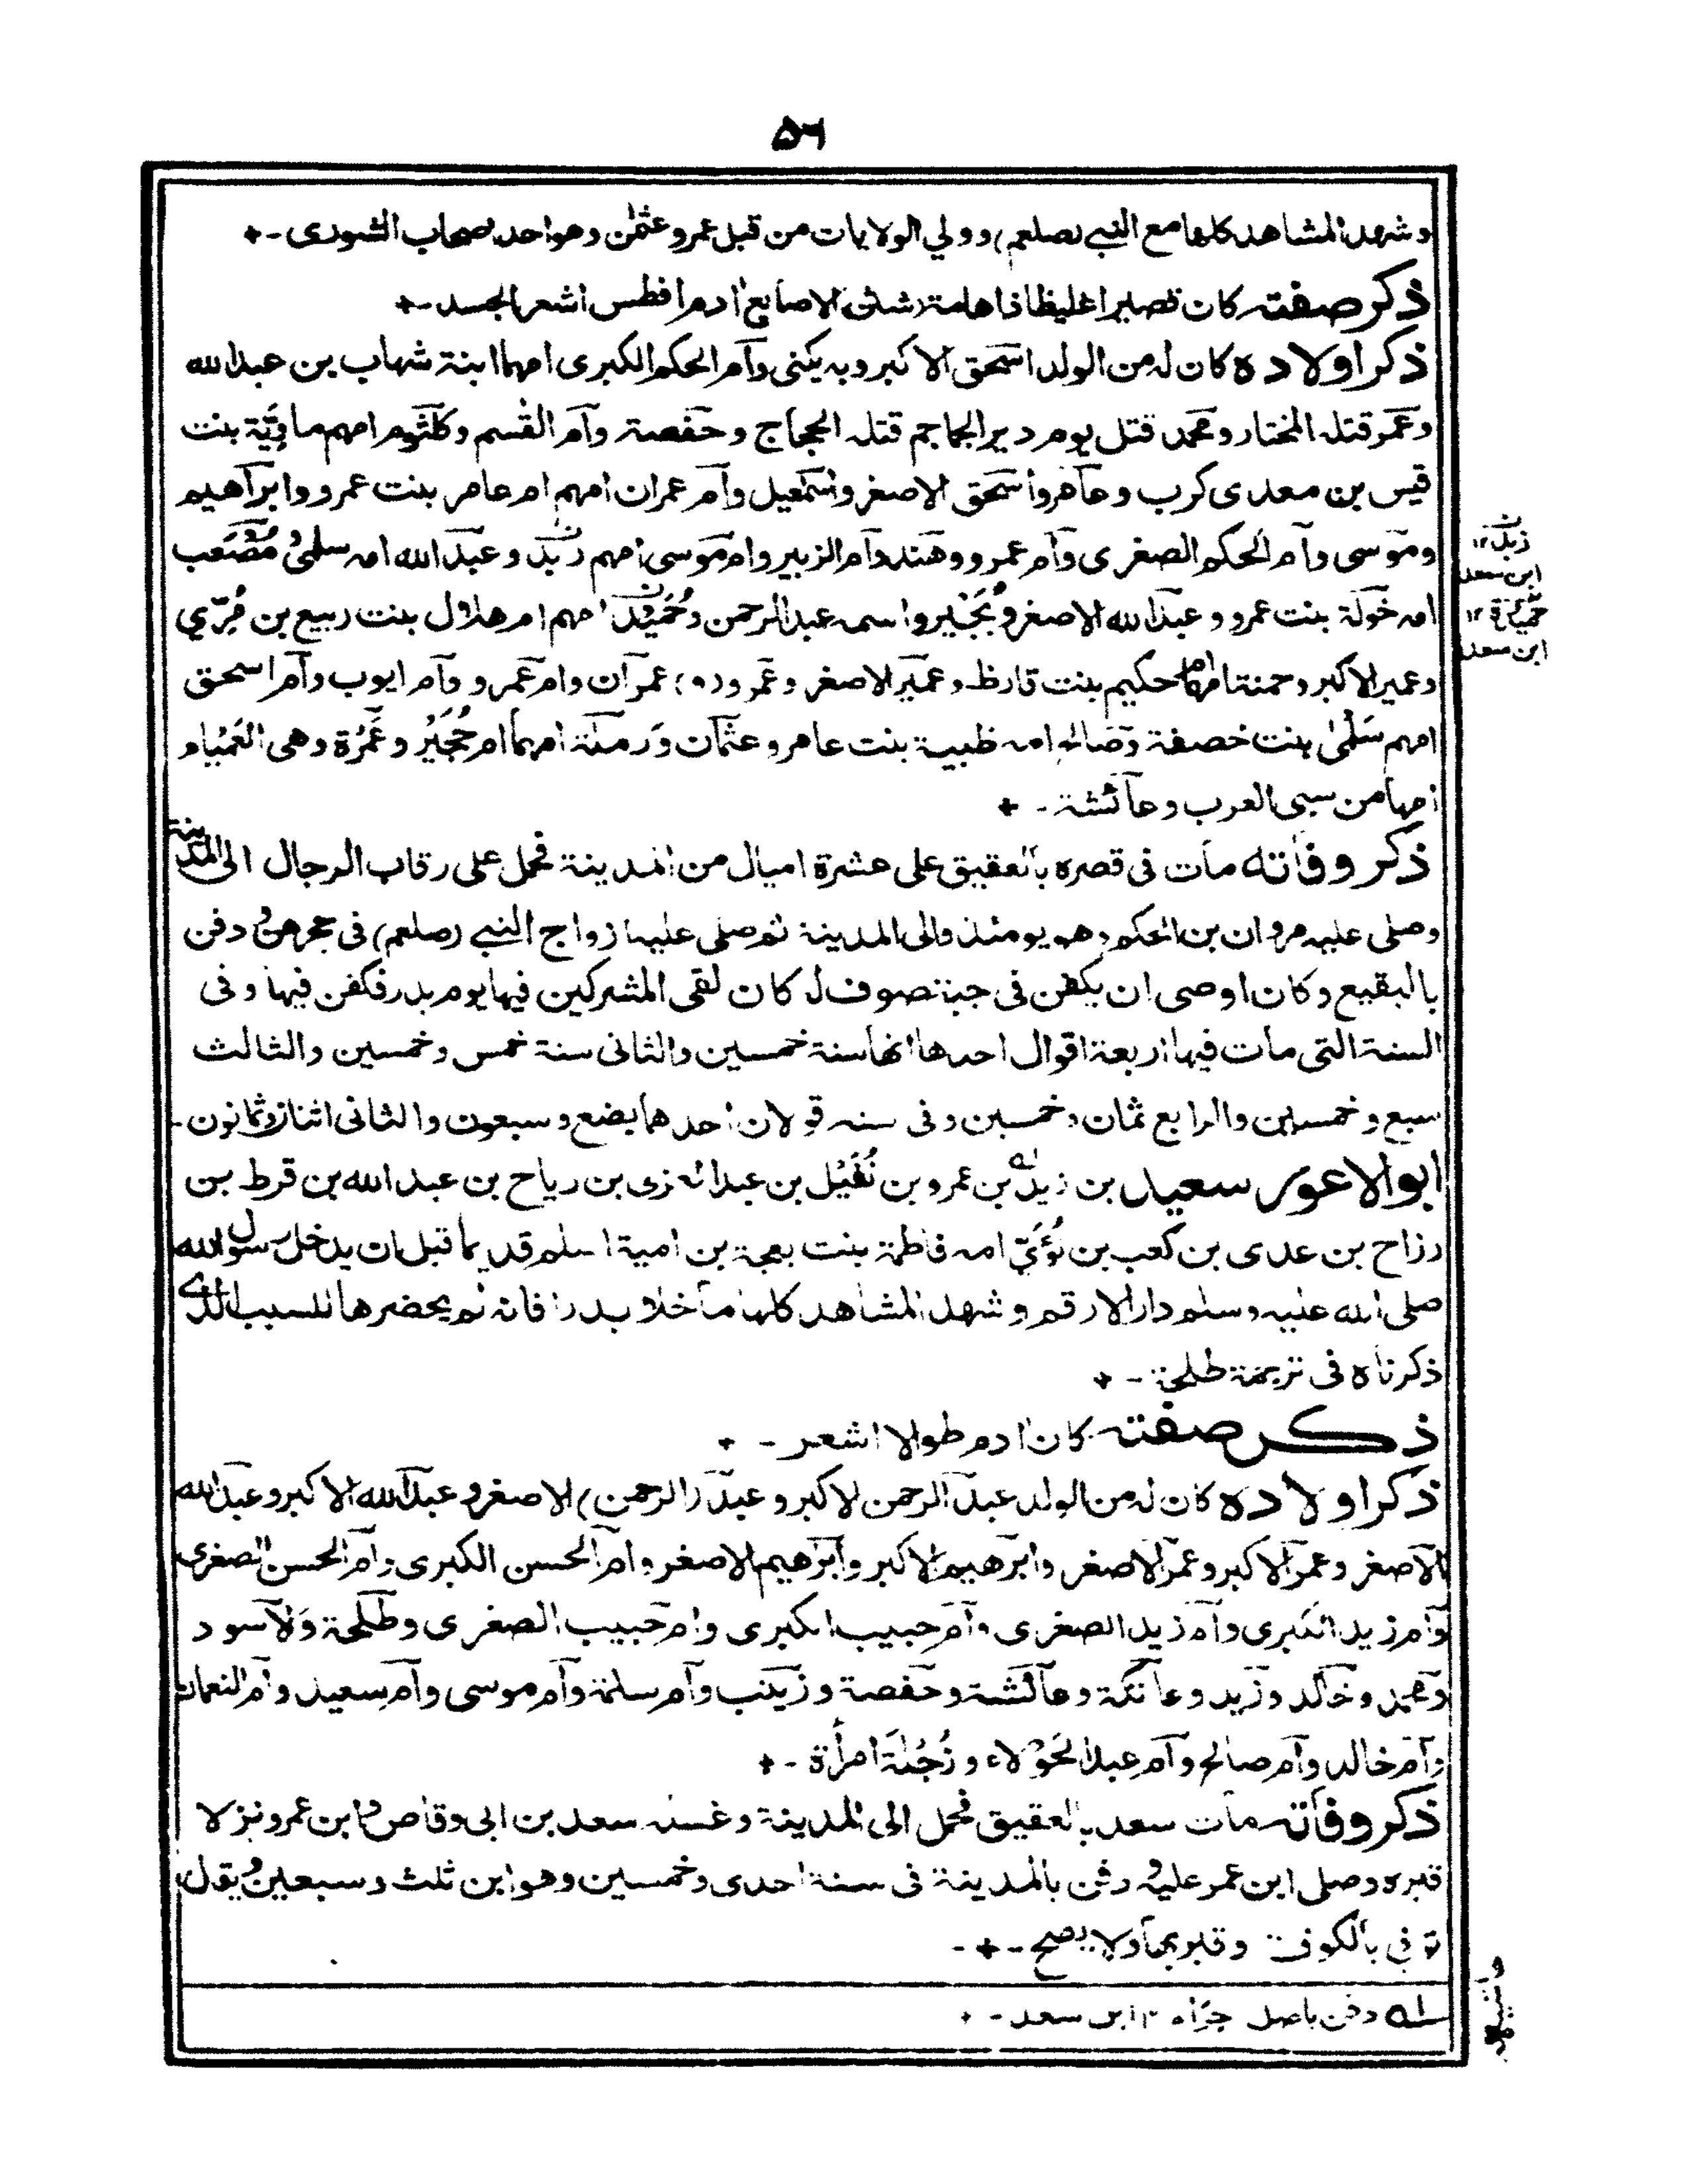 ٥٦
وشهد المشاهد كلها مع النبي (صلعم) وولي الولايات من قبل عمر وعثمن وهو احد اصحاب الشورى -+
ذكر صفته كان قصيرا غليظا ذا هامة شثن الاصابع ادم افطس اشعر الجسد -+
ذكر اولاده كان له من الولد اسحق الاكبر وبه يكنى وام الحكم الكبرى امهما ابنة شهاب بن عبد الله
وعمر قتله المختار ومحمد قتل يوم دير الجماجم قتله الحجاج وحفصة وام القسم وكلثوم امهم ماوية بنت
قيس بن معدى كرب وعامر واسحق الاصغر واسمعيل وام عمران امهم ام عامر بنت عمرو وابراهيم
وموسى وام الحكم الصغرى وام عمرو وهند وام الزبير وام موسى امهم زبد وعبد الله امه سلمى ومصعب
امه خولة بنت عمرو وعبد الله الاصغر وبجير واسمه عبد الرحمن وحميدة امهم ام هلال بنت ربيع بن مري
وعمير الاكبر وحمنة امهما ام حكيم بنت قارظ وعمير الاصغر وعمرو (و) عمران وام عمرو وام ايوب وام اسحق
امهم سلمى بنت خصفة وصالح امه ظبية بنت عامر وعثمان ورملة امهما ام حجير وعمرة وهى العمياء
امها من سبى العرب وعائشة - +
ذكر وفاته مات فى قصره بالعقيق على عشرة اميال من المدينة فحمل على رقاب الرجال الى المدينة
وصلى عليه مروان بن الحكم وهو يومئذ والى المدينة ثم صلى عليه ازواج النبي (صلعم) فى حجرهن ودفن
بالبقيع وكان اوصى ان يكفن فى جبة صوف له كان لقى المشركين فيها يوم بدر فكفن فيها وفى
السنة التى مات فيها اربعة اقوال احدها انها سنة خمسين والثانى سنة خمس وخمسين والثالث
سبع وخمسين والرابع ثمان وخمسين وفى سنه قولان احدهما بضع وسبعون والثانى اثنان وثمانون -
ابو الاعور سعيد بن زيد بن عمرو بن نفيل بن عبد العزى بن رياح بن عبد الله بن قرط بن
رزاح بن عدى بن كعب بن لؤي امه فاطمة بنت بعجة بن امية اسلم قديما قبل ان يدخل رسول الله
صلى الله عليه وسلم دار الارقم وشهد المشاهد كلها ما خلا بدرا فانه لم يحضرها للسبب الذى
ذكرناه فى ترجمة طلحة - +
ذكر صفته كان ادم طوالا اشعر - +
ذكر اولاده كان له من الولد عبد الرحمن الاكبر وعبد (الرحمن) الاصغر وعبد الله الاكبر وعبد الله
الاصغر وعمر الاكبر وعمر الاصغر وابرهيم الاكبر وابرهيم الاصغر وام الحسن الكبرى وام الحسن الصغرى
وام زيد الكبرى وام زيد الصغرى وام حبيب الكبرى وام حبيب الصغرى وطلحة والاسود
ومحمد وخالد وزيد وعاتكة وعائشة وحفصة وزينب وام سلمة وام موسى وام سعيد وام النعمان
وام خالد وام صالح وام عبد الحولاء وزجلة امرأة -+
ذكر وفاته مات سعد بالعقيق فحمل الى المدينة وغسله سعد بن ابى وقاص وابن عمر ونزلا
قبره وصلى ابن عمر عليه ودفن بالمدينة فى سنة احدى وخمسين وهو ابن ثلث وسبعين ويقال
توفى بالكوفة وقبر بها ولا يصح -+-
له دفن باصل حراء ١٢ ابن سعد - +
ن
زبد ١٢
ابن سعد
حميدة ١٢
ابن سعد